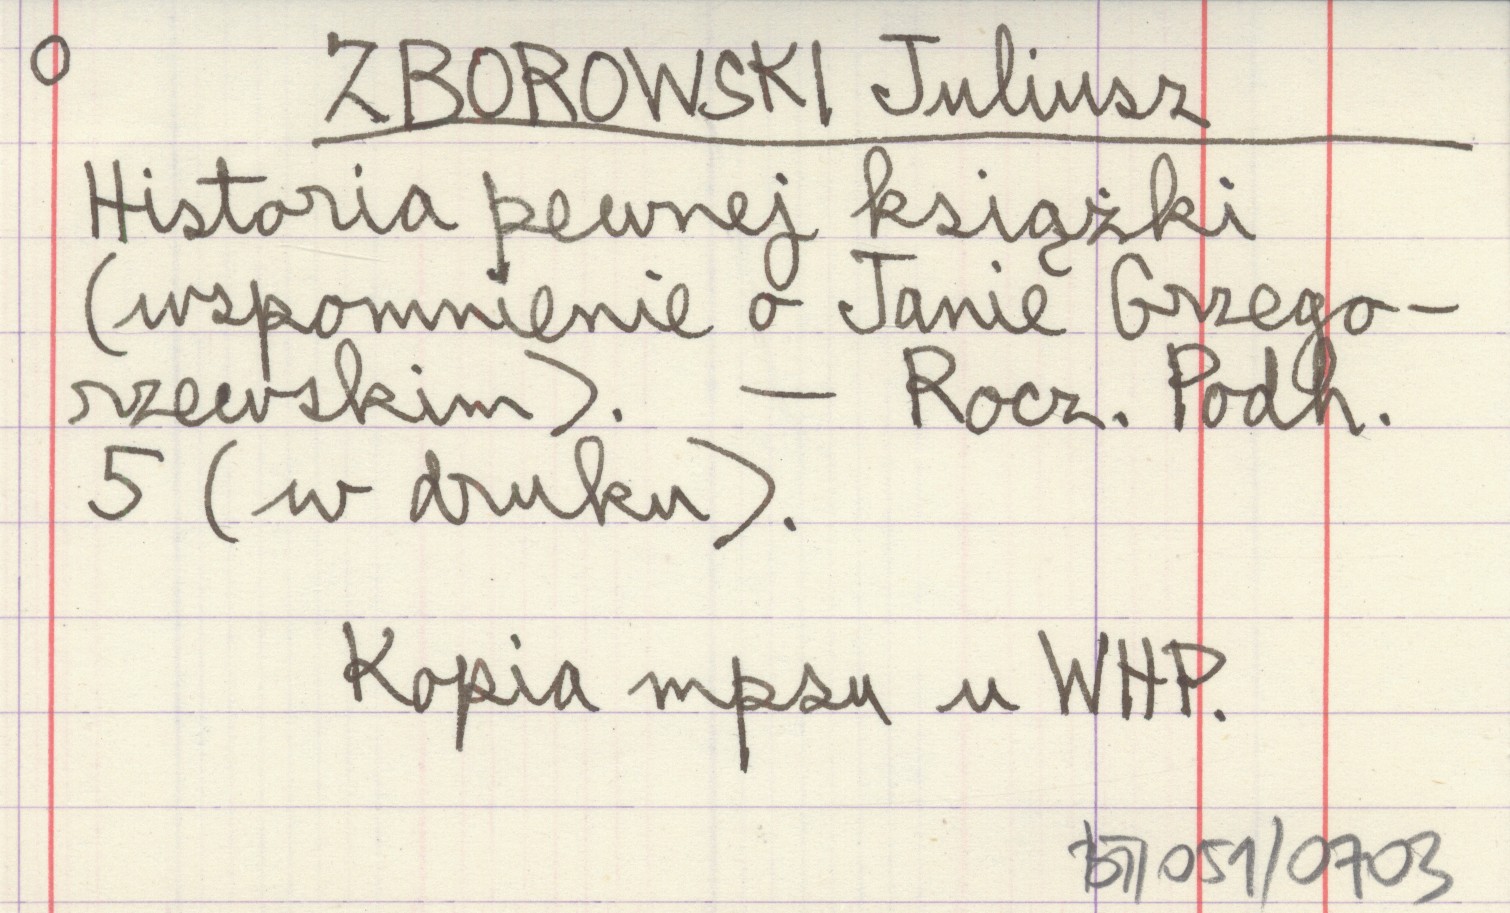 O ZBOROWSKI Juliusz
Historia pewnej książki
(wspomnienie o Janie Grzego-
rzewskim). — Rocz. Podh.
5 (w druku).
Kopia mpsu u WHP.
051/0703